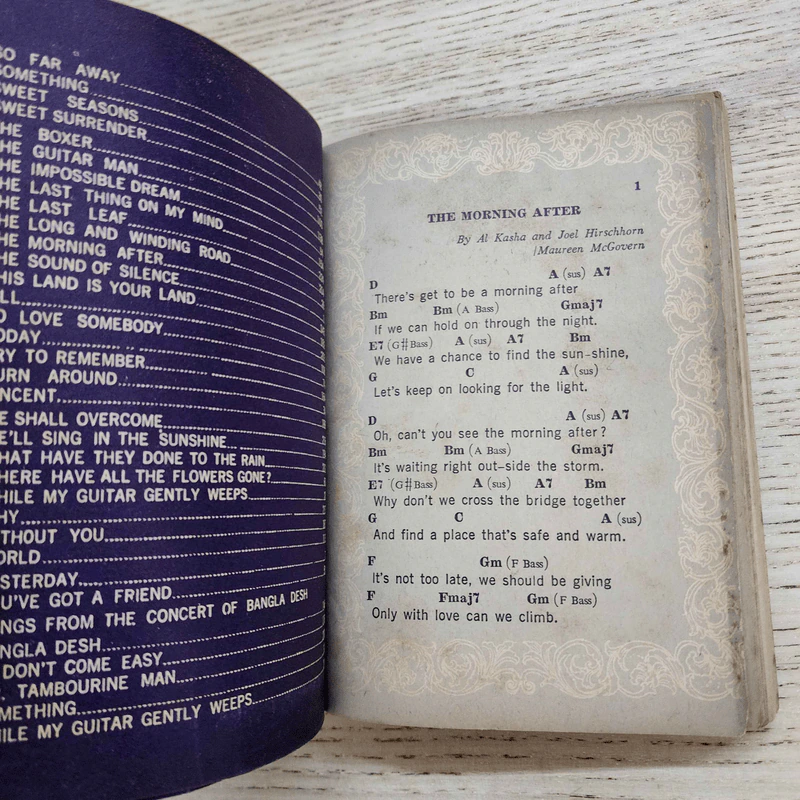 SO FAR AWAY
SOMETHING
SWEET SEASONS
SWEET SURRENDER
HE BOXER
HE GUITAR MAN
HE IMPOSSIBLE DREAM
HE LAST THING ON MY MIND
HE LAST LEAF
HE LONG AND WINDING ROAD
HE MORNING AFTER
HE SOUND OF SILENCE
HIS LAND IS YOUR LAND
LL
O LOVE SOMEBODY
ODAY
RY TO REMEMBER
URN AROUND
NCENT
E SHALL OVERCOME
E'LL SING IN THE SUNSHINE
HAT HAVE THEY DONE TO THE RAIN
HERE HAVE ALL THE FLOWERS GONE?
HILE MY GUITAR GENTLY WEEPS
HY
ITHOUT YOU
ORLD
ESTERDAY
OU'VE GOT A FRIEND
NGS FROM THE CONCERT OF BANGLA DESH
NGLA DESH
DON'T COME EASY
TAMBOURINE MAN
METHING
HILE MY GUITAR GENTLY WEEPS
1
THE MORNING AFTER
By Al Kasha and Joel Hirschhorn
/Maureen McGovern
D A (sus) A7
There's get to be a morning after
Bm Bm (A Bass) Gmaj7
If we can hold on through the night.
E7 (G#Bass) A (sus) A7 Bm
We have a chance to find the sun-shine,
G C A (sus)
Let's keep on looking for the light.
D A (sus) A7
Oh, can't you see the morning after?
Bm Bm (A Bass) Gmaj7
It's waiting right out-side the storm.
E7 (G#Bass) A (sus) A7 Bm
Why don't we cross the bridge together
G C A (sus)
And find a place that's safe and warm.
F Gm (F Bass)
It's not too late, we should be giving
F Fmaj7 Gm (F Bass)
Only with love can we climb.